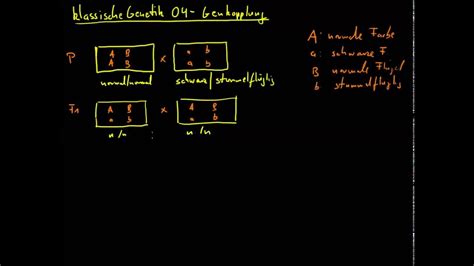 klassische Genetik 04 - Genkopplung
P A B A B x a b a b
normal/normal schwarz/stummelflüglig
F1 A B a b x A B a b
n/n : n/n
A: normale Farbe
a: schwarze F
B normale Flügel
b stummelflüglig